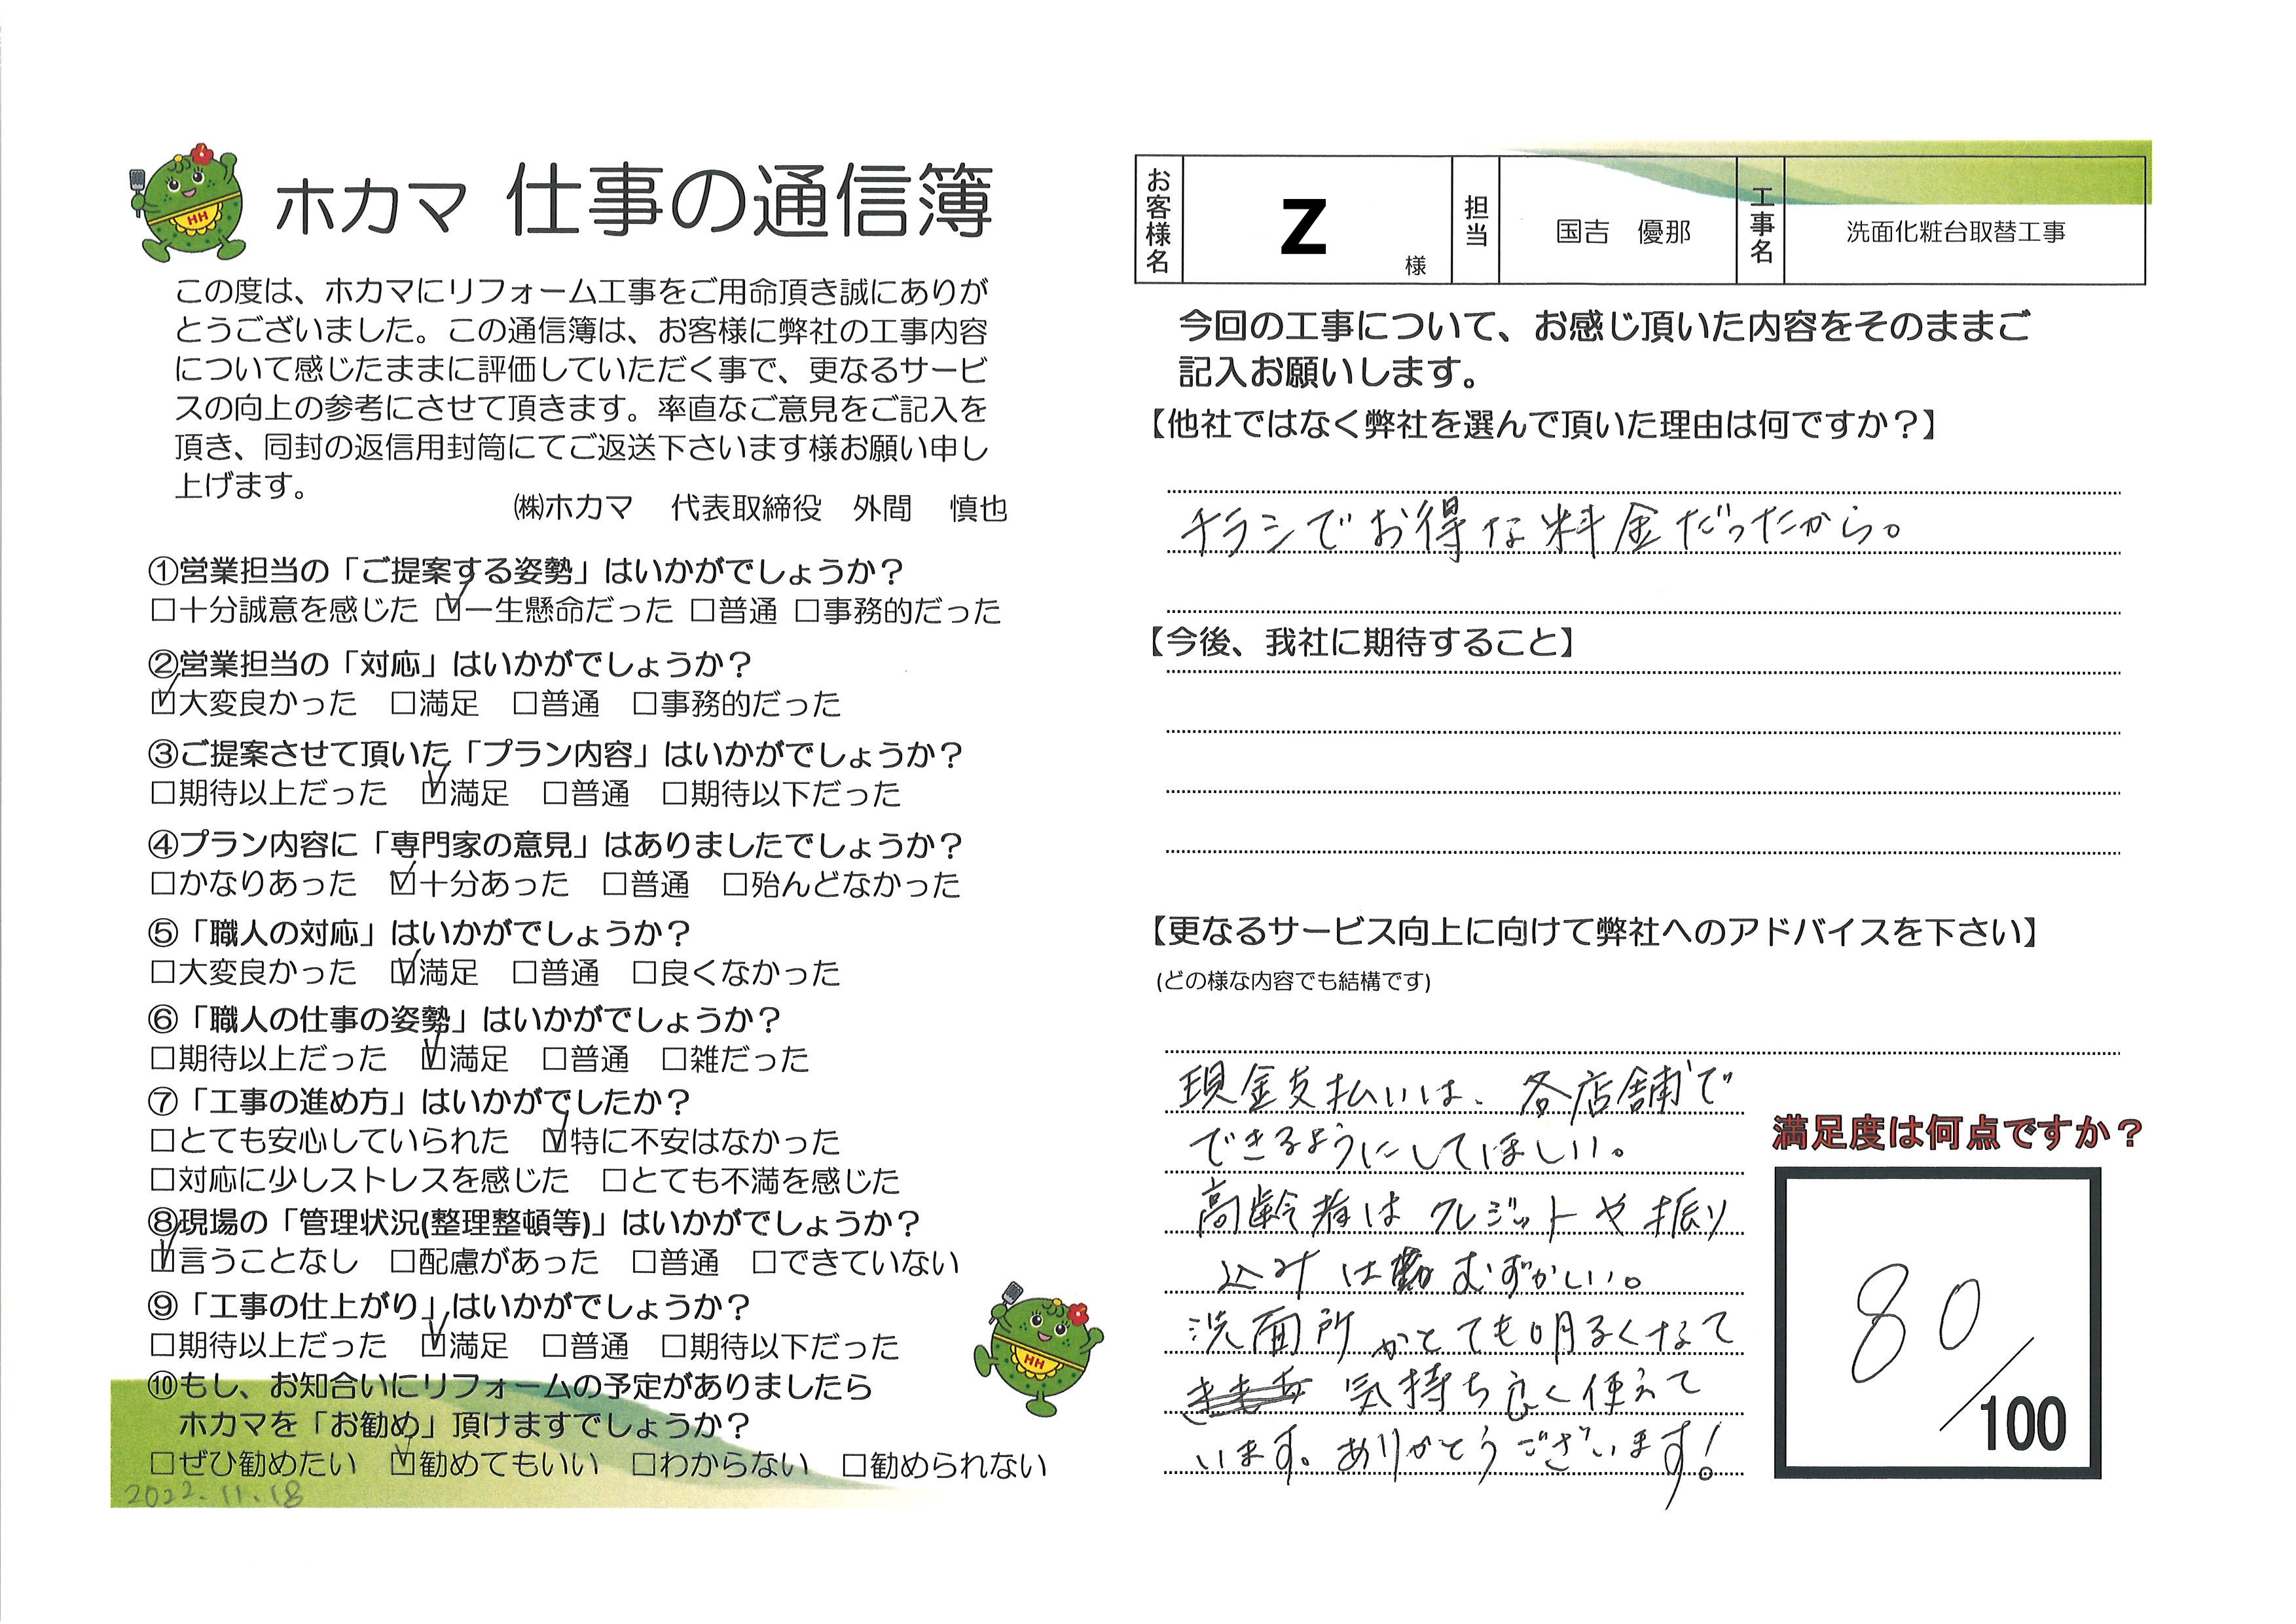 ホカマ 仕事の通信簿
この度は、ホカマにリフォーム工事をご用命頂き誠にありが
とうございました。この通信簿は、お客様に弊社の工事内容
について感じたままに評価していただく事で、更なるサービ
スの向上の参考にさせて頂きます。率直なご意見をご記入を
頂き、同封の返信用封筒にてご返送下さいます様お願い申し
上げます。
㈱ホカマ 代表取締役 外間 慎也
①営業担当の「ご提案する姿勢」はいかがでしょうか？
□十分誠意を感じた ☑一生懸命だった □普通 □事務的だった
②営業担当の「対応」はいかがでしょうか？
☑大変良かった □満足 □普通 □事務的だった
③ご提案させて頂いた「プラン内容」はいかがでしょうか？
□期待以上だった ☑満足 □普通 □期待以下だった
④プラン内容に「専門家の意見」はありましたでしょうか？
□かなりあった ☑十分あった □普通 □殆んどなかった
⑤「職人の対応」はいかがでしょうか？
□大変良かった ☑満足 □普通 □良くなかった
⑥「職人の仕事の姿勢」はいかがでしょうか？
□期待以上だった ☑満足 □普通 □雑だった
⑦「工事の進め方」はいかがでしたか？
□とても安心していられた ☑特に不安はなかった
□対応に少しストレスを感じた □とても不満を感じた
⑧現場の「管理状況(整理整頓等)」はいかがでしょうか？
☑言うことなし □配慮があった □普通 □できていない
⑨「工事の仕上がり」はいかがでしょうか？
□期待以上だった ☑満足 □普通 □期待以下だった
⑩もし、お知合いにリフォームの予定がありましたら
ホカマを「お勧め」頂けますでしょうか？
□ぜひ勧めたい ☑勧めてもいい □わからない □勧められない
2022.11.18
HH
HH
お客様名 Z 様 担当 国吉 優那 工事名 洗面化粧台取替工事
今回の工事について、お感じ頂いた内容をそのままご
記入お願いします。
【他社ではなく弊社を選んで頂いた理由は何ですか？】
チラシでお得な料金だったから。
【今後、我社に期待すること】
【更なるサービス向上に向けて弊社へのアドバイスを下さい】
(どの様な内容でも結構です)
現金支払いは、各店舗で
できるようにしてほしい。
高齢者はクレジットや振り
込みは むずかしい。
洗面所がとても明るくなて
気持ち良く使えて
います。ありがとうございます！
満足度は何点ですか？
80/100